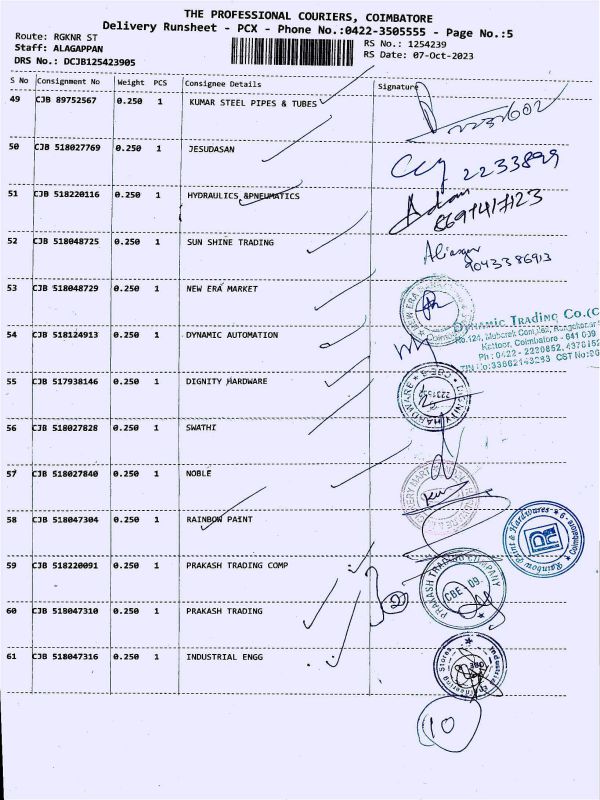 THE PROFESSIONAL COURIERS, COIMBATORE
Delivery Runsheet - PCX - Phone No.:0422-3505555 - Page No.:5
Route: RGKNR ST
RS No.: 1254239
Staff: ALAGAPPAN
RS Date: 07-Oct-2023
DRS No.: DCJB125423905
S No Consignment No Weight PCS Consignee Details Signature
49 CJB 89752567 0.250 1 KUMAR STEEL PIPES & TUBES
50 CJB 518027769 0.250 1 JESUDASAN
2233899
51 CJB 518220116 0.250 1 HYDRAULICS &PNEUMATICS
52 CJB 518048725 0.250 1 SUN SHINE TRADING
9043386913
53 CJB 518048729 0.250 1 NEW ERA MARKET
NEW ERA
DYNAMIC TRADING CO.(C
54 CJB 518124913 0.250 1 DYNAMIC AUTOMATION
Coimbatore - 641 009
55 CJB 517938146 0.250 1 DIGNITY HARDWARE
DIGNITY HARDWARE
56 CJB 518027828 0.250 1 SWATHI
57 CJB 518027840 0.250 1 NOBLE
58 CJB 518047304 0.250 1 RAINBOW PAINT
Rainbow Paint & Hardwares
Coimbatore - 9
59 CJB 518220091 0.250 1 PRAKASH TRADING COMP
PRAKASH TRADING COMPANY
CBE 09.
60 CJB 518047310 0.250 1 PRAKASH TRADING
2
61 CJB 518047316 0.250 1 INDUSTRIAL ENGG
Industrial Engineering Stores
10